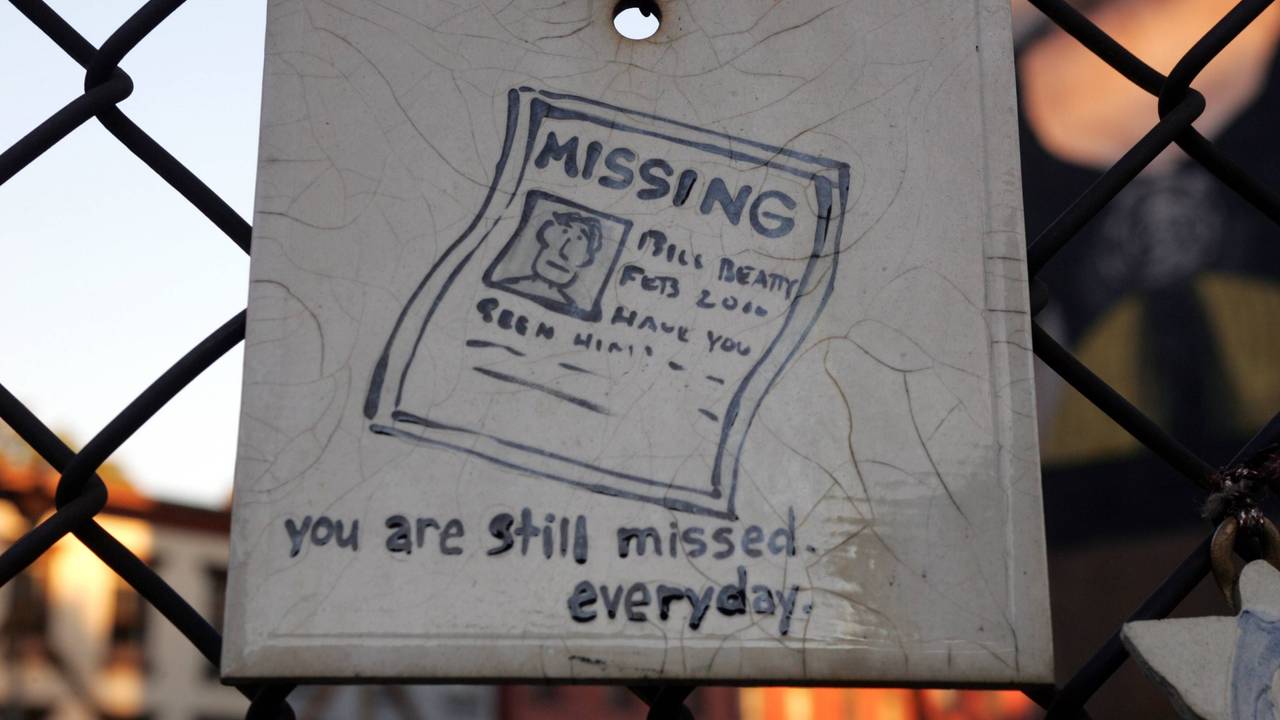 MISSING
BILL BEATTY
FEB
HAVE YOU
SEEN HIM?
you are still missed.
everyday.